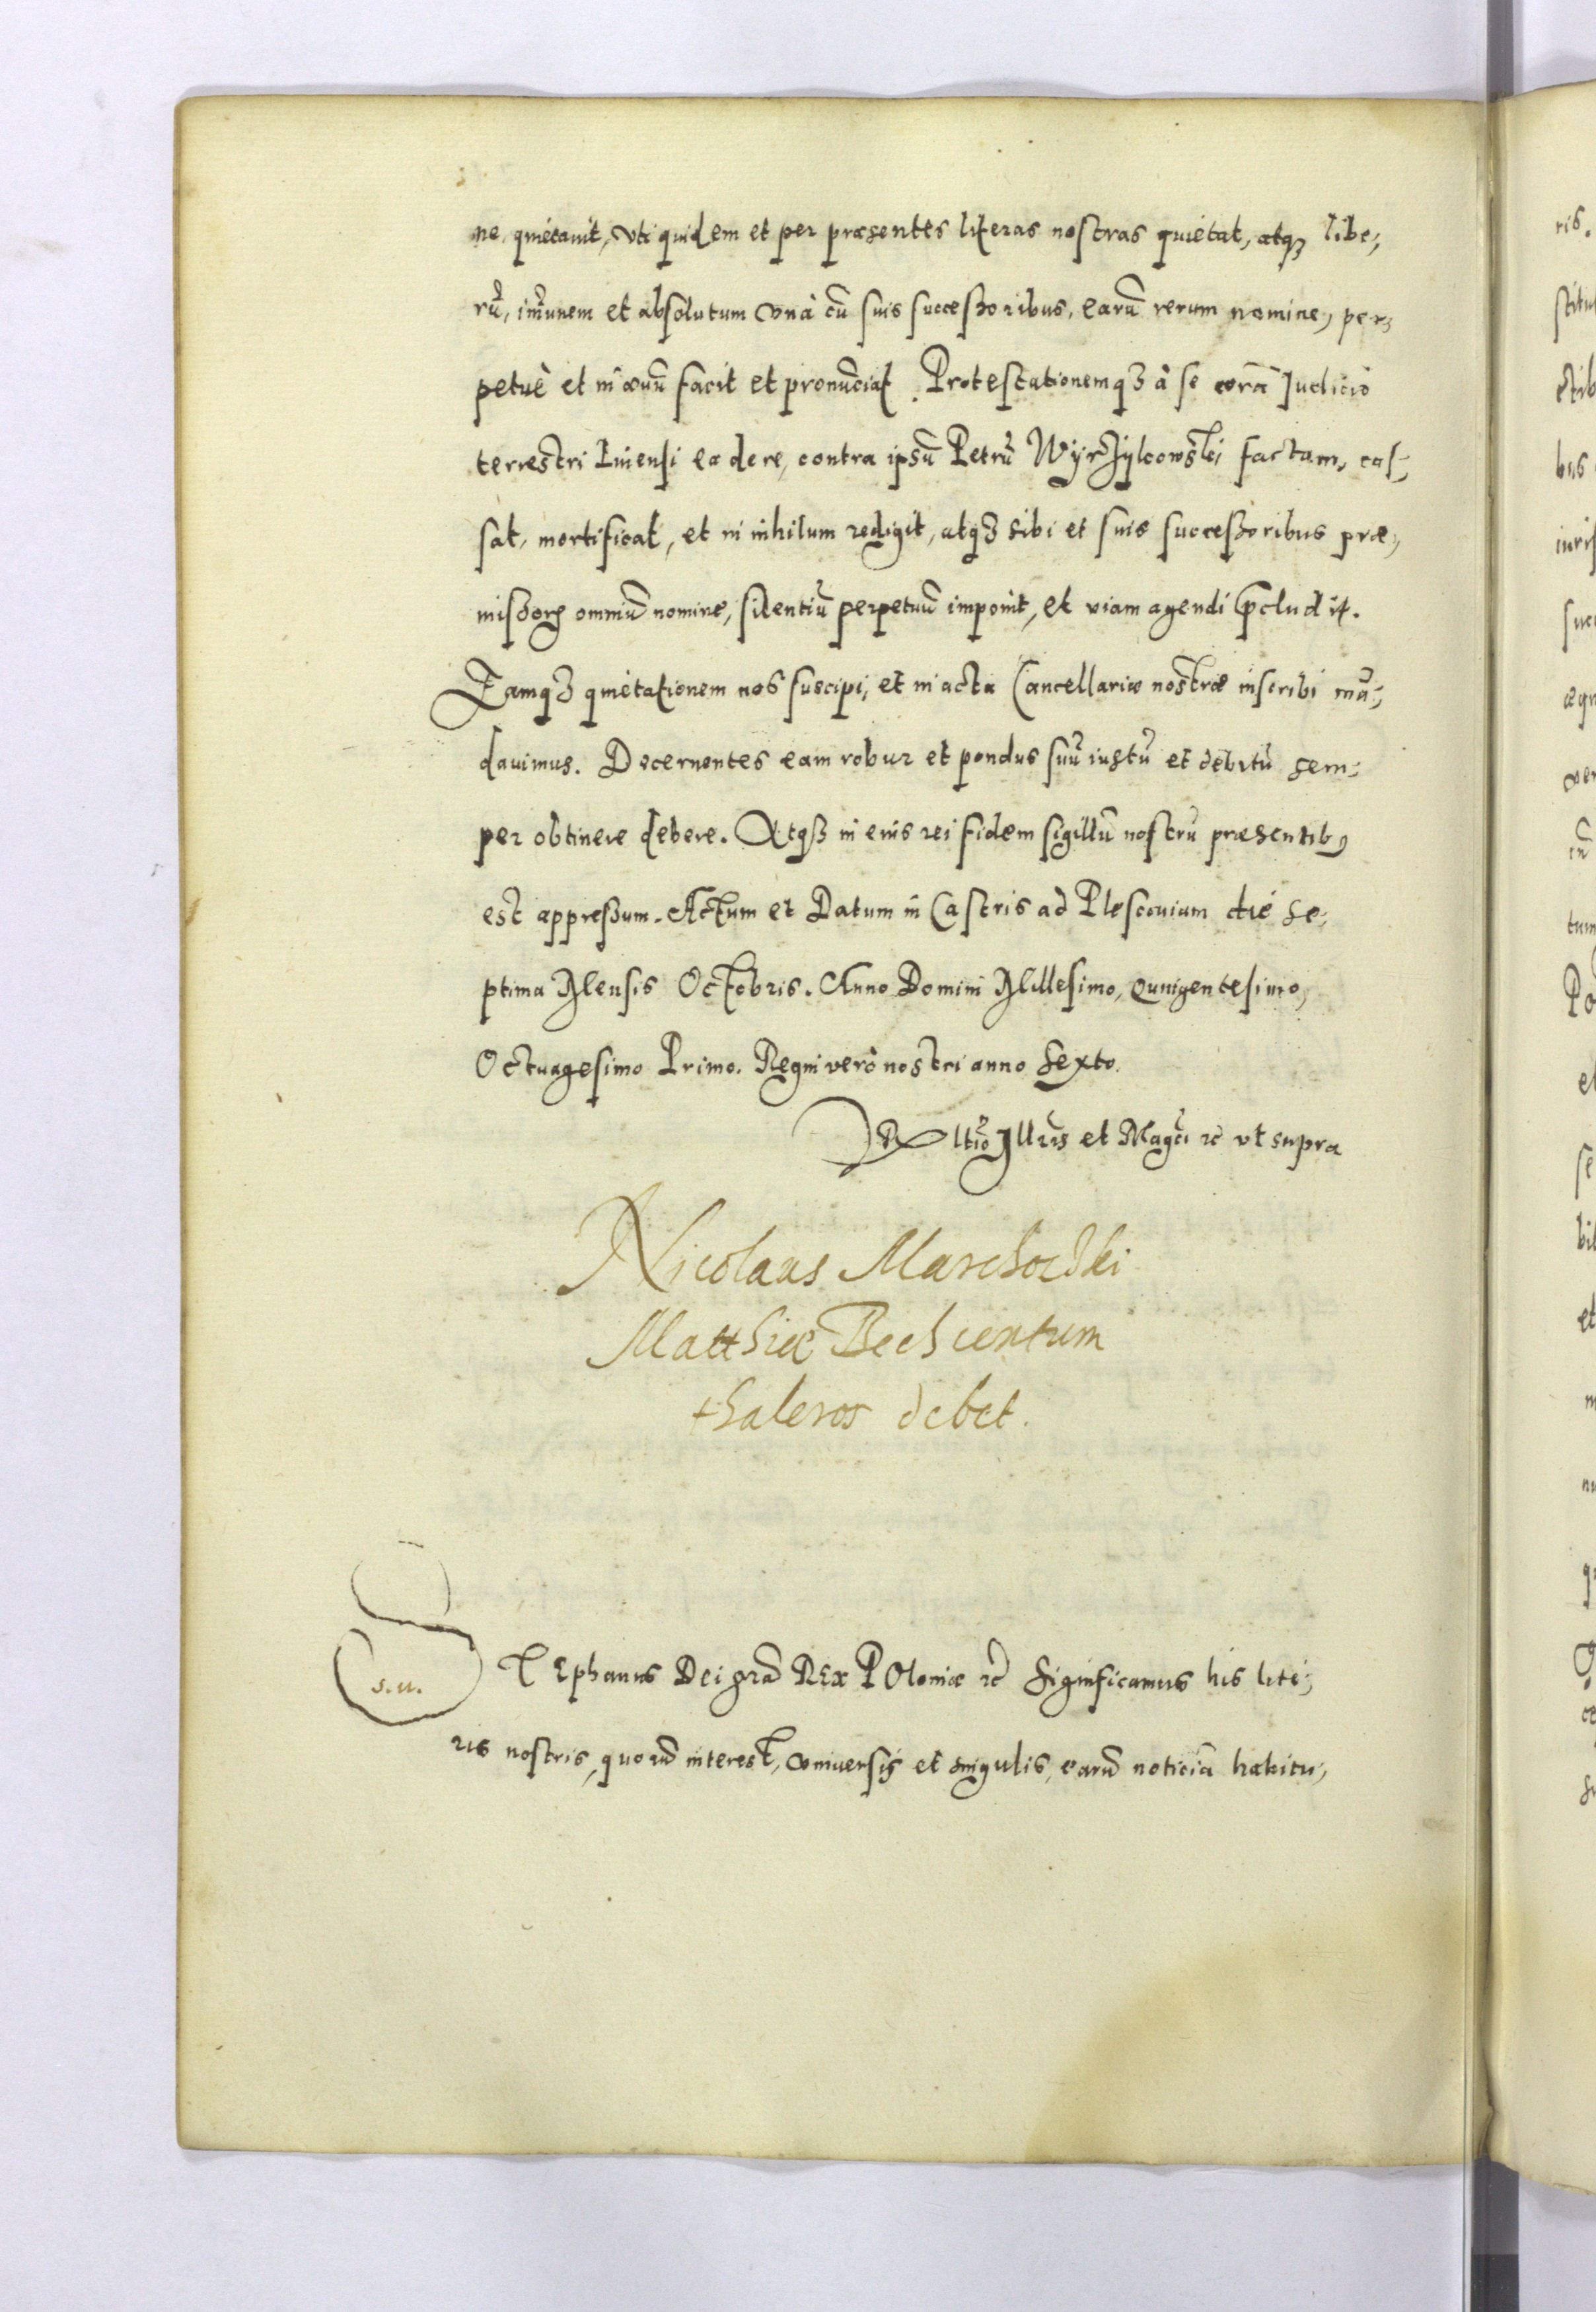 ne quietauit, vti quidem et per præsentes literas nostras quietat, atq3 libe;
rũ, im̃unem et absolutum vnà cũ suis successoribus, earũ rerum nomine, per;
petuè et in æuũ facit et pronũciat. Protestationemq3 à se corã Iudicio
terrestri Liuensi ea de re, contra ipsũ Petrũ factam, cas;
sat, mortificat, et in nihilum redigit, atq3 sibi et suis successoribus præ;
missorꝝ omniũ nomine, silentiũ perpetuũ imponit, et viam agendi p̃cludit.
Eamq3 quietationem nos suscipi, et in acta Cancellariæ nostræ inscribi mã;
dauimus. Decernentes eam robur et pondus suũ iustũ et debitũ sem;
per obtinere debere. Atq3 in eius rei fidem sigillũ nostrũ præsentibꝰ
est appressum. Actum et Datum in Castris ad Plescouiam die Se;
ptima Mensis Octobris. Anno Domini Millesimo, Quingentesimo,
Octuagesimo Primo. Regni verò nostri anno Sexto.
Rltio Illris et Magci ꝛc vt supra
Nicolaus Marchoczki
Matthiæ Bech centum
thaleros debet.
s.u.
STEphanus Dei grã REx POloniæ ꝛc Significamus his lite;
ris nostris, quorũ interest, vniuersis et singulis, earũ noticiã habitu;
ris.